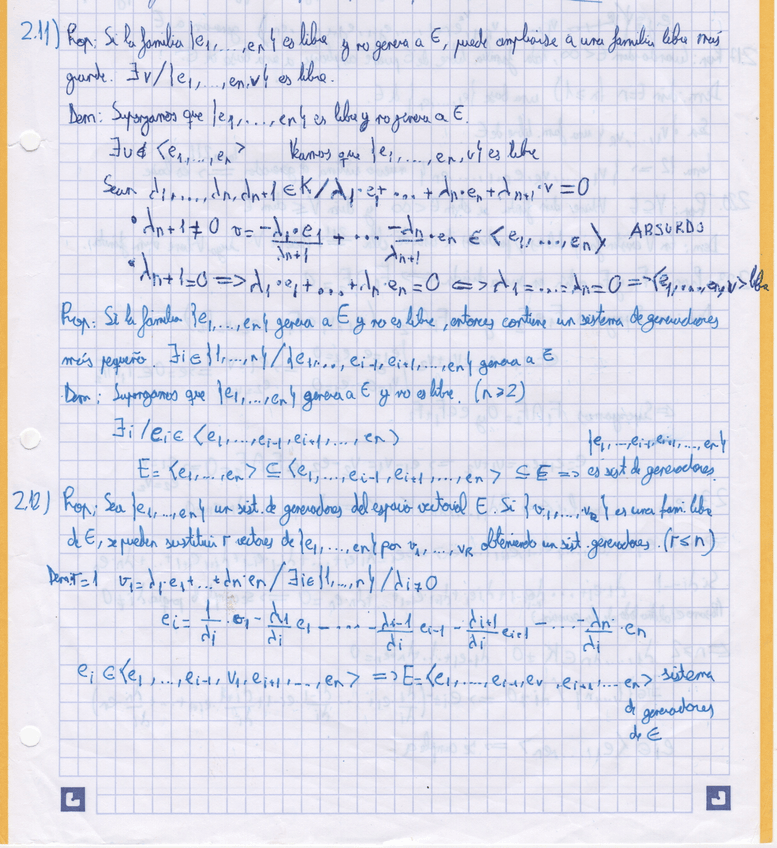 2.11) Prop: Si la familia {e1,...,en} es libre y no genera a E, puede ampliarse a una familia libre más
grande. ∃v/{e1,...,en,v} es libre.
Dem: Supongamos que {e1,...,en} es libre y no genera a E.
∃v∉<e1,...,en> Veamos que {e1,...,en,v} es libre
Sean λ1,...,λn,λn+1 ∈ K/λ1·e1+...+λn·en+λn+1·v=0
• λn+1≠0 v=-λ1·e1/λn+1 + ... -λn/λn+1·en ∈ <e1,...,en> ABSURDO
• λn+1=0 => λ1·e1+...+λn·en=0 <=> λ1=...=λn=0 => <e1,...,en,v> libre
Prop: Si la familia {e1,...,en} genera a E y no es libre, entonces contiene un sistema de generadores
más pequeño ∃i∈{1,...,n}/{e1,...,ei-1,ei+1,...,en} genera a E
Dem: Supongamos que {e1,...,en} genera a E y no es libre. (n≥2)
∃i/ei∈<e1,...,ei-1,ei+1,...,en>
{e1,...,ei-1,ei+1,...,en}
E=<e1,...,en> ⊆ <e1,...,ei-1,ei+1,...,en> ⊆ E => es sist. de generadores.
2.12) Prop: Sea {e1,...,en} un sist. de generadores del espacio vectorial E. Si {v1,...,vR} es una fam. libre
de E, se pueden sustituir r vectores de {e1,...,en} por v1,...,vR obteniendo un sist. generadores. (r≤n)
Dem: r=1 v1=λ1·e1+...+λn·en/∃i∈{1,...,n}/λi≠0
ei=1/λi·v1-λ1/λi e1-...-λi-1/λi ei-1-λi+1/λi ei+1-...-λn/λi·en
ei∈<e1,...,ei-1,v1,ei+1,...,en> => E=<e1,...,ei-1,ev,ei+1,...en> sistema
de generadores
de E